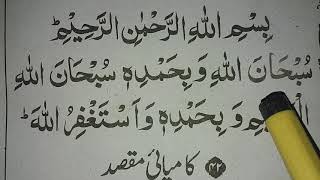 بِسْمِ اللهِ الرَّحْمٰنِ الرَّحِيْمِ ط
سُبْحَانَ اللهِ وَ بِحَمْدِهٖ سُبْحَانَ اللهِ
وَ بِحَمْدِهٖ وَ اَسْتَغْفِرُ اللهَ ط
کامیابیٔ مقصد